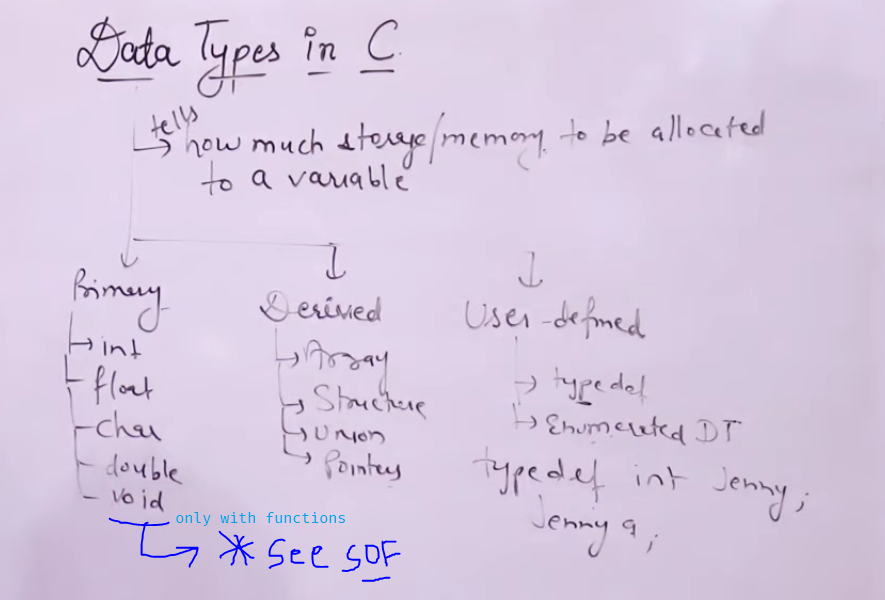 Data Types in C
tells
how much storage/memory to be allocated
to a variable
Primary
int
float
char
double
void
only with functions
* See SOF
Derived
Array
Structure
Union
Pointers
User-defined
typedef
Enumerated DT
typedef int Jenny;
Jenny a;